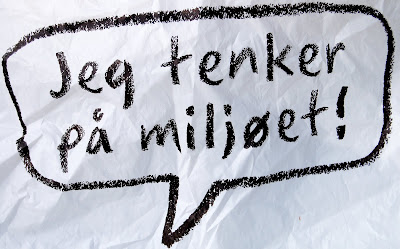 Jeg tenker
på miljøet!